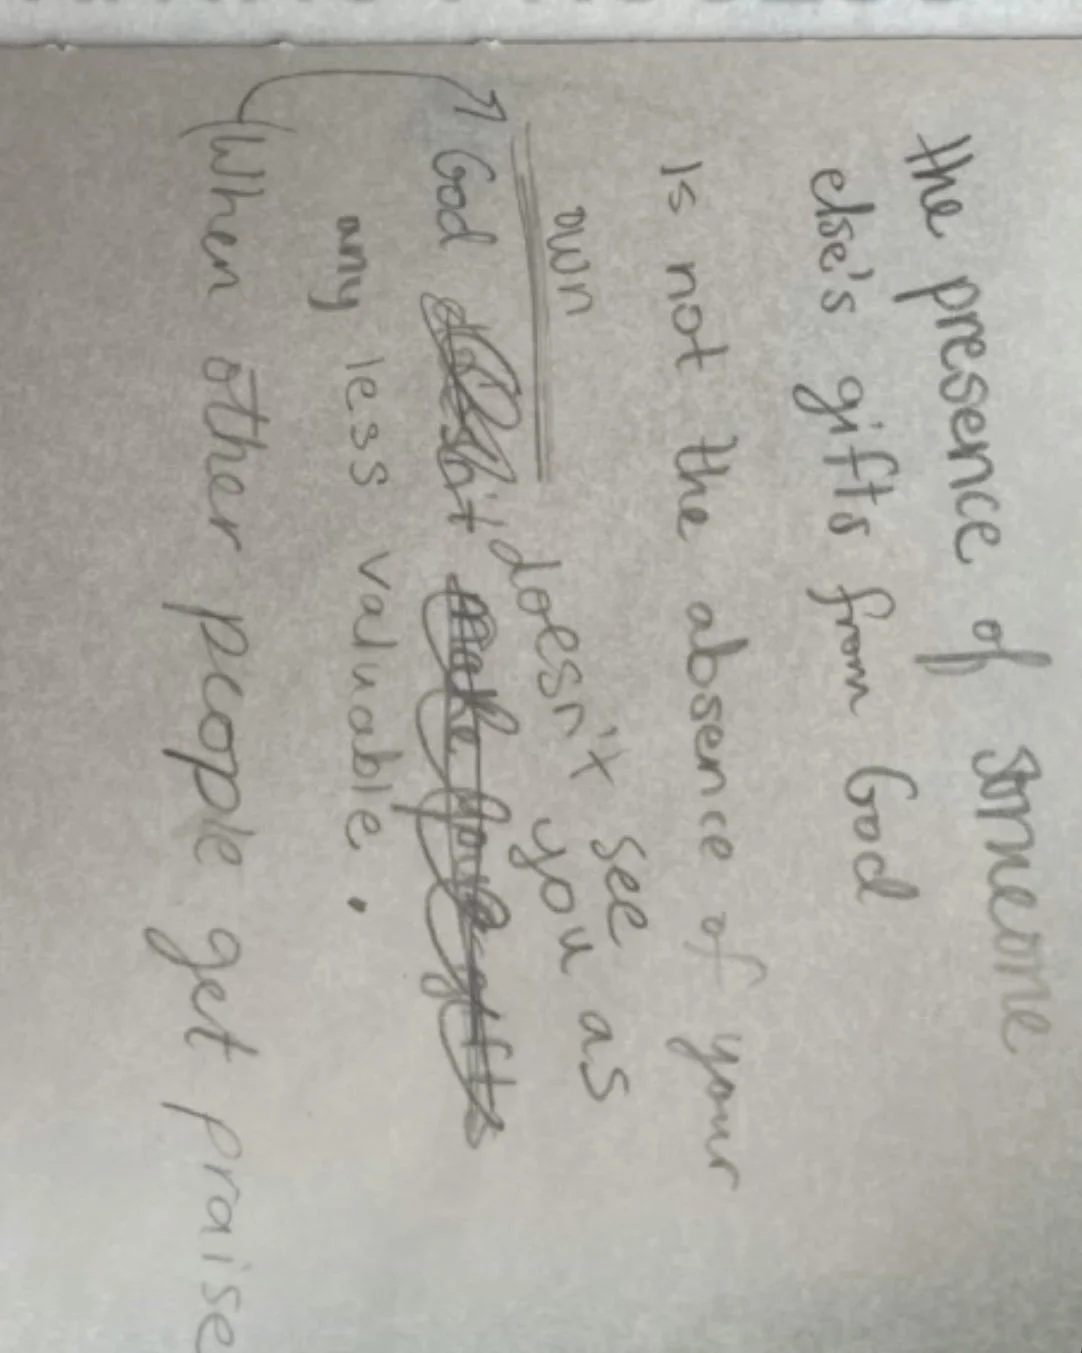 the presence of someone
else's gifts from God
Is not the absence of your
own
God doesn't make your gifts
doesn't see
you as
any less valuable.
When other people get praise